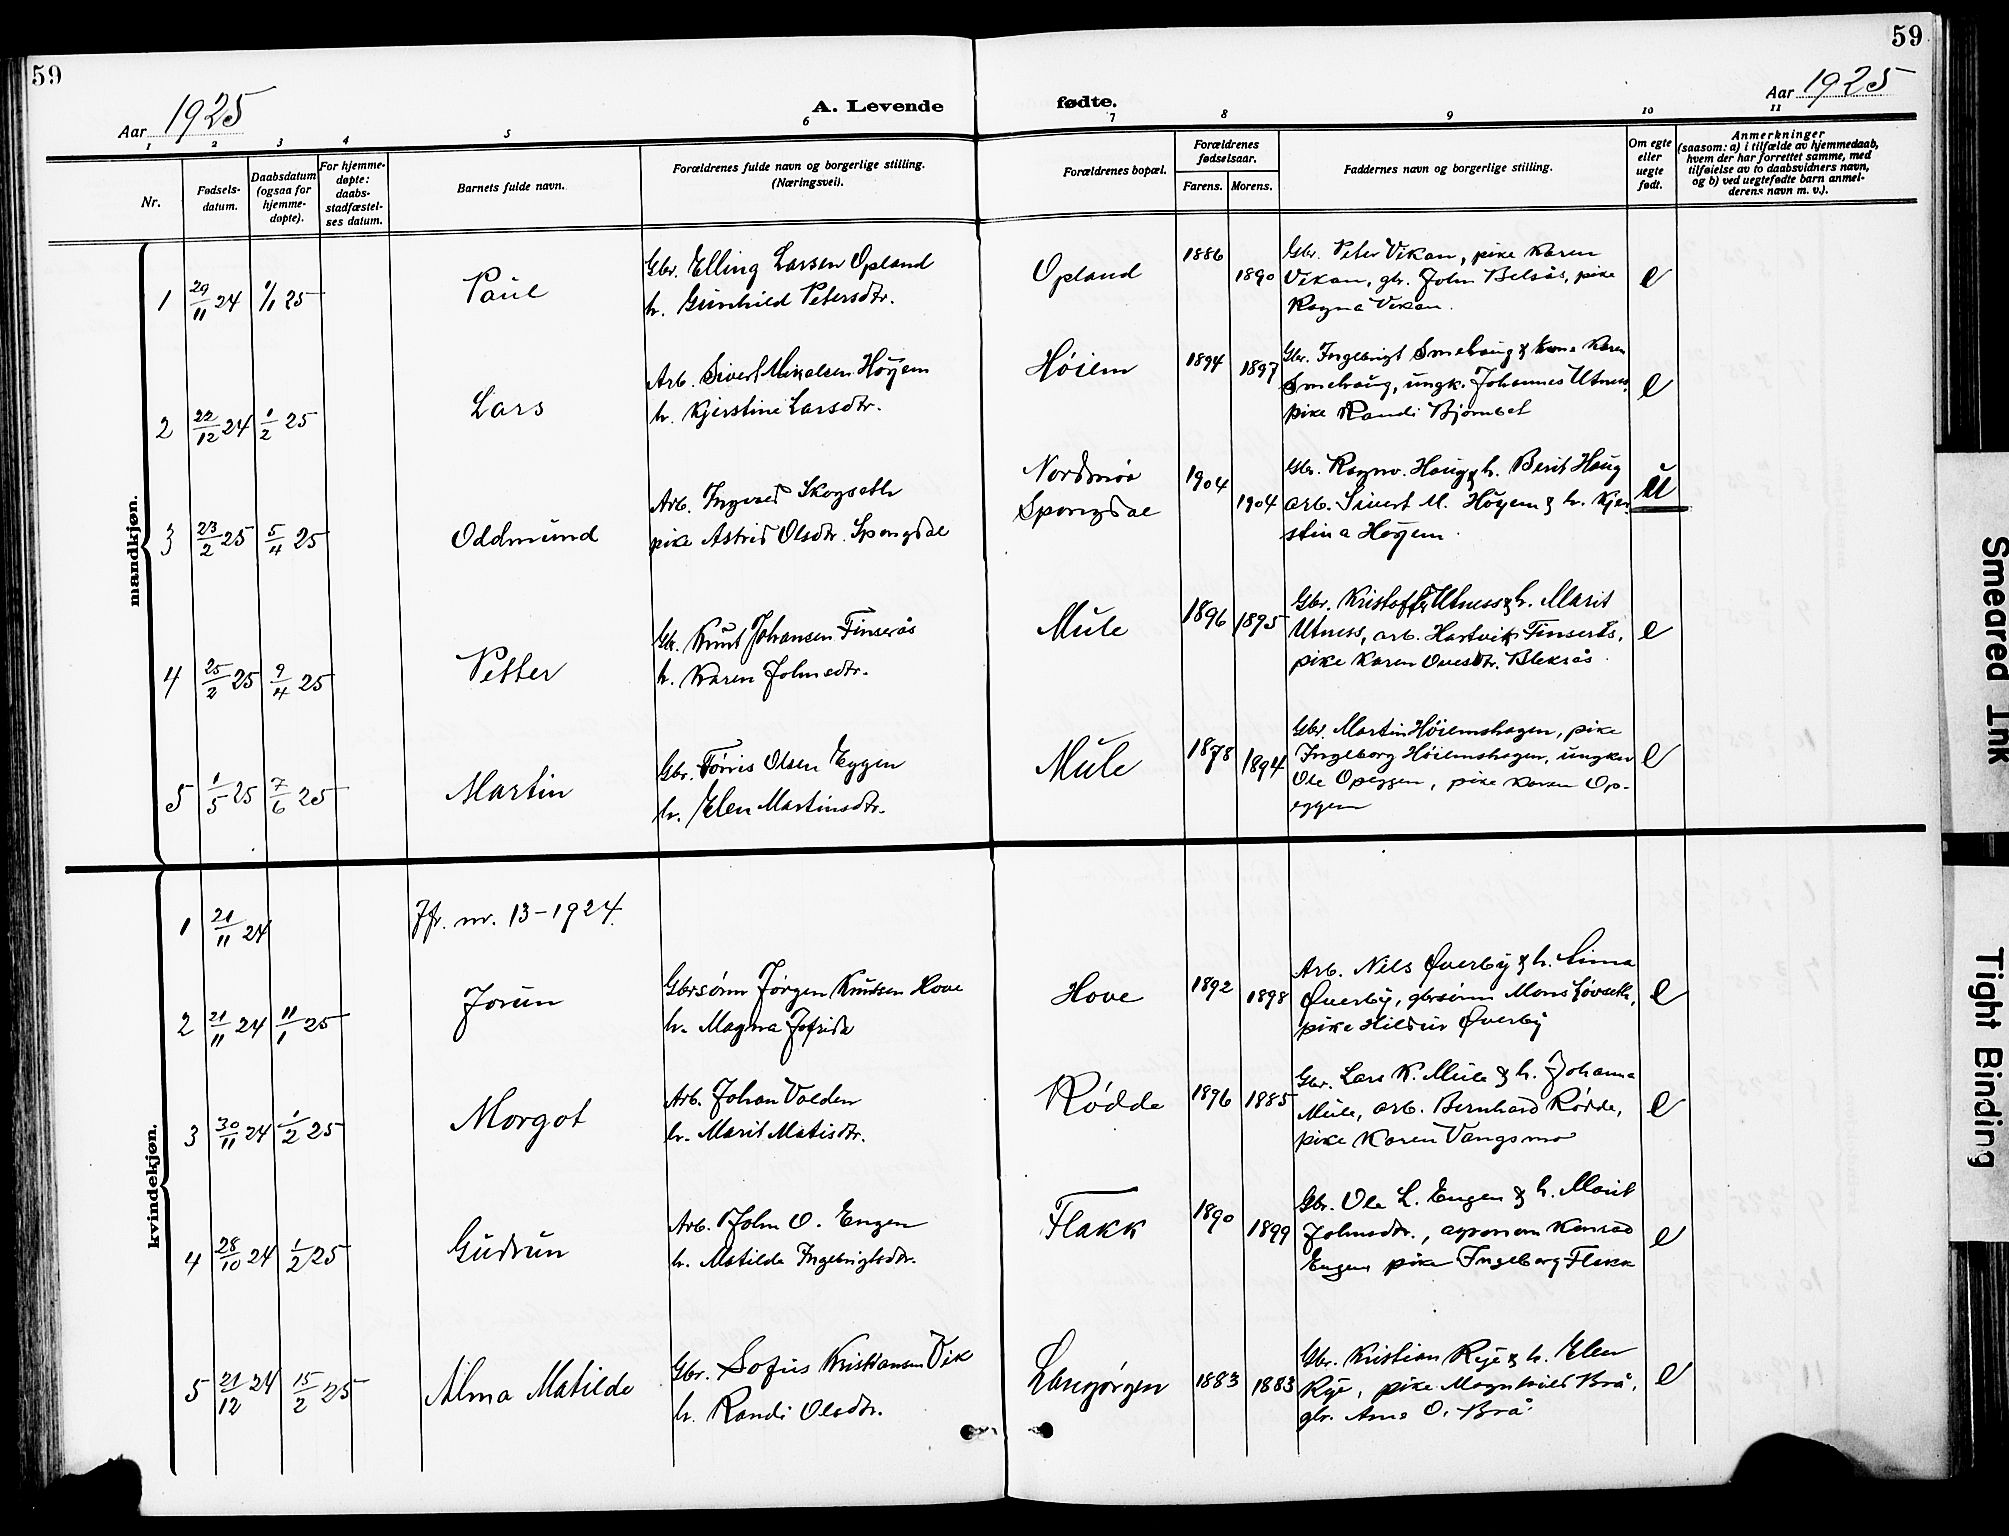 59
59
Aar 1925
A. Levende
fødte.
Aar 1925
1 2 3 4 5 6 7 8 9 10 11
Nr.
Fødsels-
datum.
Daabsdatum
(ogsaa for
hjemme-
døpte).
For hjemme-
døpte:
daabs-
stadfæstel-
ses datum.
Barnets fulde navn.
Forældrenes fulde navn og borgerlige stilling.
(Næringsvei).
Forældrenes bopæl.
Forældrenes
fødselsaar.
Farens. Morens.
Faddernes navn og borgerlige stilling.
Om egte
eller
uegte
født.
Anmerkninger
(saasom: a) i tilfælde av hjemmedaab,
hvem der har forrettet samme, med
tilføielse av to daabsvidners navn,
og b) ved uegtefødte barn anmel-
derens navn m. v.).
mandkjøn.
1 29/11 24 1/1 25 Paul
Gbr. Elling Larsen Opland
h. Gunhild Petersdtr.
Opland 1886 1890
Gbr. Peter Vikan, pike Karen
Vikan, gbr. John Belsås, pike
Ragna Vikan.
e
2 22/12 24 1/2 25 Lars
Arb. Sivert Mikalsen Höyem
h. Kjerstine Larsdtr.
Høiem 1894 1897
Gbr. Ingebrigt Smehaug & kona Karen
Smehaug, ungk. Johannes Utness,
pike Randi Bjørnbet
e
3 23/2 25 5/4 25 Oddmund
Arb. Ingvald Skogseth
pike Astrid Olsdtr. Spongdal
Nordmøa
Spongdal
1904 1904
Gbr. Ragnv. Haug & h. Berit Haug
arb. Sivert M. Höyem & h. Kjer-
stina Höyem.
u
4 25/2 25 9/4 25 Petter
Gbr. Knut Johansen Finserås
h. Karen Johnsdtr.
Mule 1896 1895
Gbr. Kristoffer Utness & h. Marit
Utness, arb. Hartvik Finserås,
pike Karen Ovesdtr. Bleksås.
e
5 1/5 25 7/6 25 Martin
Gbr. Tørris Olsen Eggen
h. Elen Martinsdtr.
Mule 1878 1894
Gbr. Martin Høiemshagen, pike
Ingeborg Høiemshagen, ungkar
Ole Opeggen, pike Karen Op-
eggen
e
kvindekjøn.
1 21/11 24 Jfr. nr. 13-1924.
2 21/11 24 11/1 25 Jorun
Gbrsønn Jørgen Knutsen Hove
h. Magna Jofrida
Hove 1892 1898
Arb. Nils Øverby & h. Anna
Øverby, gbrsønn Mons Løvseth,
pike Hildur Øverby
e
3 30/11 24 1/2 25 Margot
Arb. Johan Valden
h. Marit Matisdtr.
Rødde 1896 1885
Gbr. Lars K. Mule & h. Johanna
Mule, arb. Bernhard Rødde,
pike Karen Vangsmo
e
4 28/10 24 1/2 25 Gudrun
Arb. John O. Engen
h. Matilde Ingebrigtsdtr.
Flakk 1890 1899
Gbr. Ole L. Engen & h. Marit
Johnsdtr., agronom Konrad
Engen pike Ingeborg Flakk
e
5 21/12 24 15/2 25 Alma Matilde
Gbr. Sofus Kristiansen Vik
h. Randi Olsdtr.
Langørgen 1883 1883
Gbr. Kristian Rye & h. Elen
Rye, pike Magnhild Brå,
gbr. Arne O. Brå.
e
Smeared Ink
Tight Binding